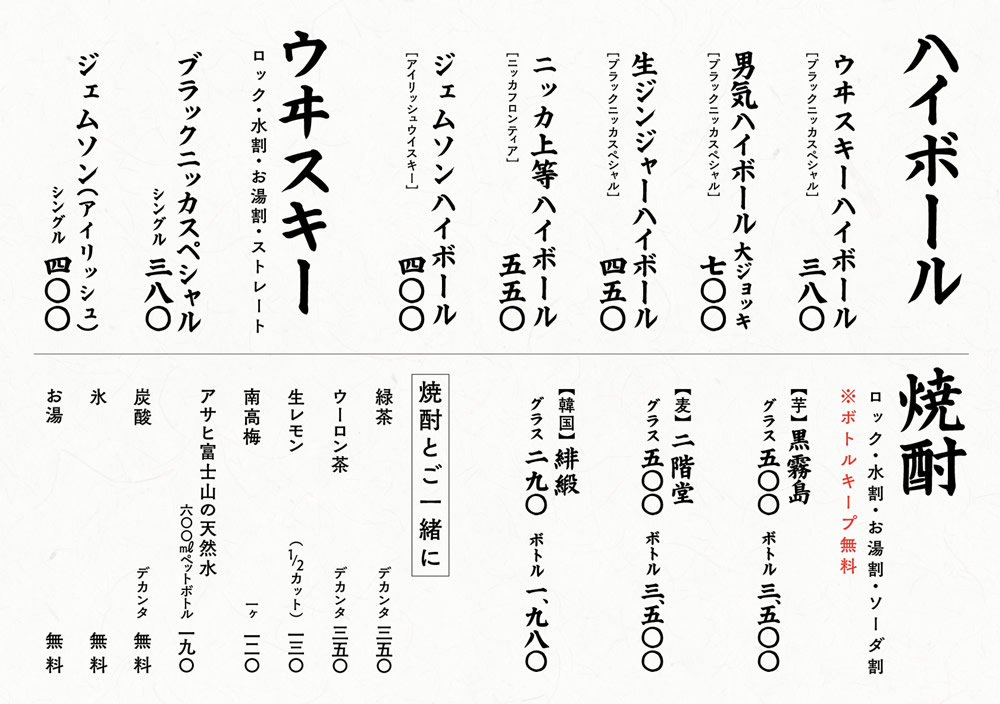 ハイボール
ウヰスキーハイボール
[ブラックニッカスペシャル]
三八〇
男気ハイボール 大ジョッキ
[ブラックニッカスペシャル]
七〇〇
生ジンジャーハイボール
[ブラックニッカスペシャル]
四五〇
ニッカ上等ハイボール
[ニッカフロンティア]
五五〇
ジェムソンハイボール
[アイリッシュウイスキー]
四〇〇
ウヰスキー
ロック・水割・お湯割・ストレート
ブラックニッカスペシャル
シングル 三八〇
ジェムソン(アイリッシュ)
シングル 四〇〇
焼酎
ロック・水割・お湯割・ソーダ割
※ボトルキープ無料
【芋】黒霧島
グラス 五〇〇 ボトル 三、五〇〇
【麦】二階堂
グラス 五〇〇 ボトル 三、五〇〇
【韓国】緋緞
グラス 二九〇 ボトル 一、九八〇
焼酎とご一緒に
緑茶 デカンタ 三五〇
ウーロン茶 デカンタ 三五〇
生レモン (1/2カット) 一三〇
南高梅 一ヶ 一二〇
アサヒ富士山の天然水
六〇〇㎖ペットボトル 一九〇
炭酸 デカンタ 無料
氷 無料
お湯 無料